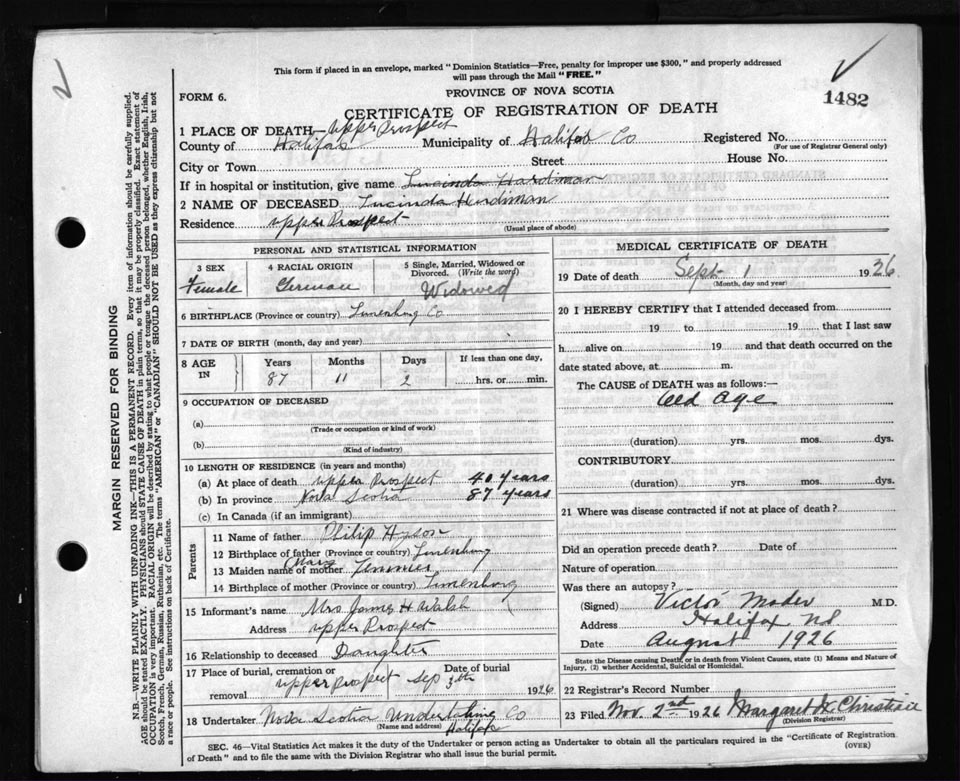 This form if placed in an envelope, marked "Dominion Statistics—Free, penalty for improper use $300," and properly addressed
will pass through the Mail "FREE."
FORM 6.
PROVINCE OF NOVA SCOTIA
1482
CERTIFICATE OF REGISTRATION OF DEATH
1 PLACE OF DEATH— Upper Prospect
County of Halifax Municipality of Halifax Co Registered No.
(For use of Registrar General only)
City or Town Street House No.
If in hospital or institution, give name Lucinda Hardiman
2 NAME OF DECEASED Lucinda Hardiman
Residence Upper Prospect
(Usual place of abode)
PERSONAL AND STATISTICAL INFORMATION
3 SEX
Female
4 RACIAL ORIGIN
German
5 Single, Married, Widowed or
Divorced. (Write the word)
Widowed
6 BIRTHPLACE (Province or country) Lunenburg Co
7 DATE OF BIRTH (month, day and year)
8 AGE IN
Years Months Days If less than one day,
87 11 2 hrs. or min.
9 OCCUPATION OF DECEASED
(a)
(Trade or occupation or kind of work)
(b)
(Kind of industry)
10 LENGTH OF RESIDENCE (in years and months)
(a) At place of death Upper Prospect 40 years
(b) In province Nova Scotia 87 years
(c) In Canada (if an immigrant)
Parents
11 Name of father Philip
12 Birthplace of father (Province or country) Lunenburg
13 Maiden name of mother Mary
14 Birthplace of mother (Province or country) Lunenburg
15 Informant's name Mrs James H Walsh
Address Upper Prospect
16 Relationship to deceased Daughter
17 Place of burial, cremation or removal Upper Prospect Date of burial Sep 3th 1926
18 Undertaker Nova Scotia Undertaking Co
(Name and address) Halifax
MEDICAL CERTIFICATE OF DEATH
19 Date of death Sept 1 1926
(Month, day and year)
20 I HEREBY CERTIFY that I attended deceased from
19 to 19 that I last saw
h alive on 19 and that death occurred on the
date stated above, at m.
The CAUSE of DEATH was as follows:—
Old Age
(duration) yrs. mos. dys.
CONTRIBUTORY
(duration) yrs. mos. dys.
21 Where was disease contracted if not at place of death?
Did an operation precede death? Date of
Nature of operation
Was there an autopsy?
(Signed) Victor Mader M.D.
Address Halifax NS
Date August 1926
State the Disease causing Death, or in death from Violent Causes, state (1) Means and Nature of
Injury, (2) whether Accidental, Suicidal or Homicidal.
22 Registrar's Record Number
23 Filed Nov. 2nd 1926 Margaret Christian
(Division Registrar)
SEC. 46—Vital Statistics Act makes it the duty of the Undertaker or person acting as Undertaker to obtain all the particulars required in the "Certificate of Registration
of Death" and to file the same with the Division Registrar who shall issue the burial permit.
(OVER)
MARGIN RESERVED FOR BINDING
N.B.—WRITE PLAINLY WITH UNFADING INK—THIS IS A PERMANENT RECORD. Every item of information should be carefully supplied.
AGE should be stated EXACTLY. PHYSICIANS should STATE CAUSE OF DEATH in plain terms, so that it may be properly classified. Exact statement of
OCCUPATION is very important. RACIAL ORIGIN will be described by stating to what people or tongue the deceased person belonged, whether English, Irish,
Scotch, French, German, Russian, Ruthenian, etc. The terms "AMERICAN" or "CANADIAN" SHOULD NOT BE USED as they express citizenship but not
a race or people. See instructions on back of Certificate.